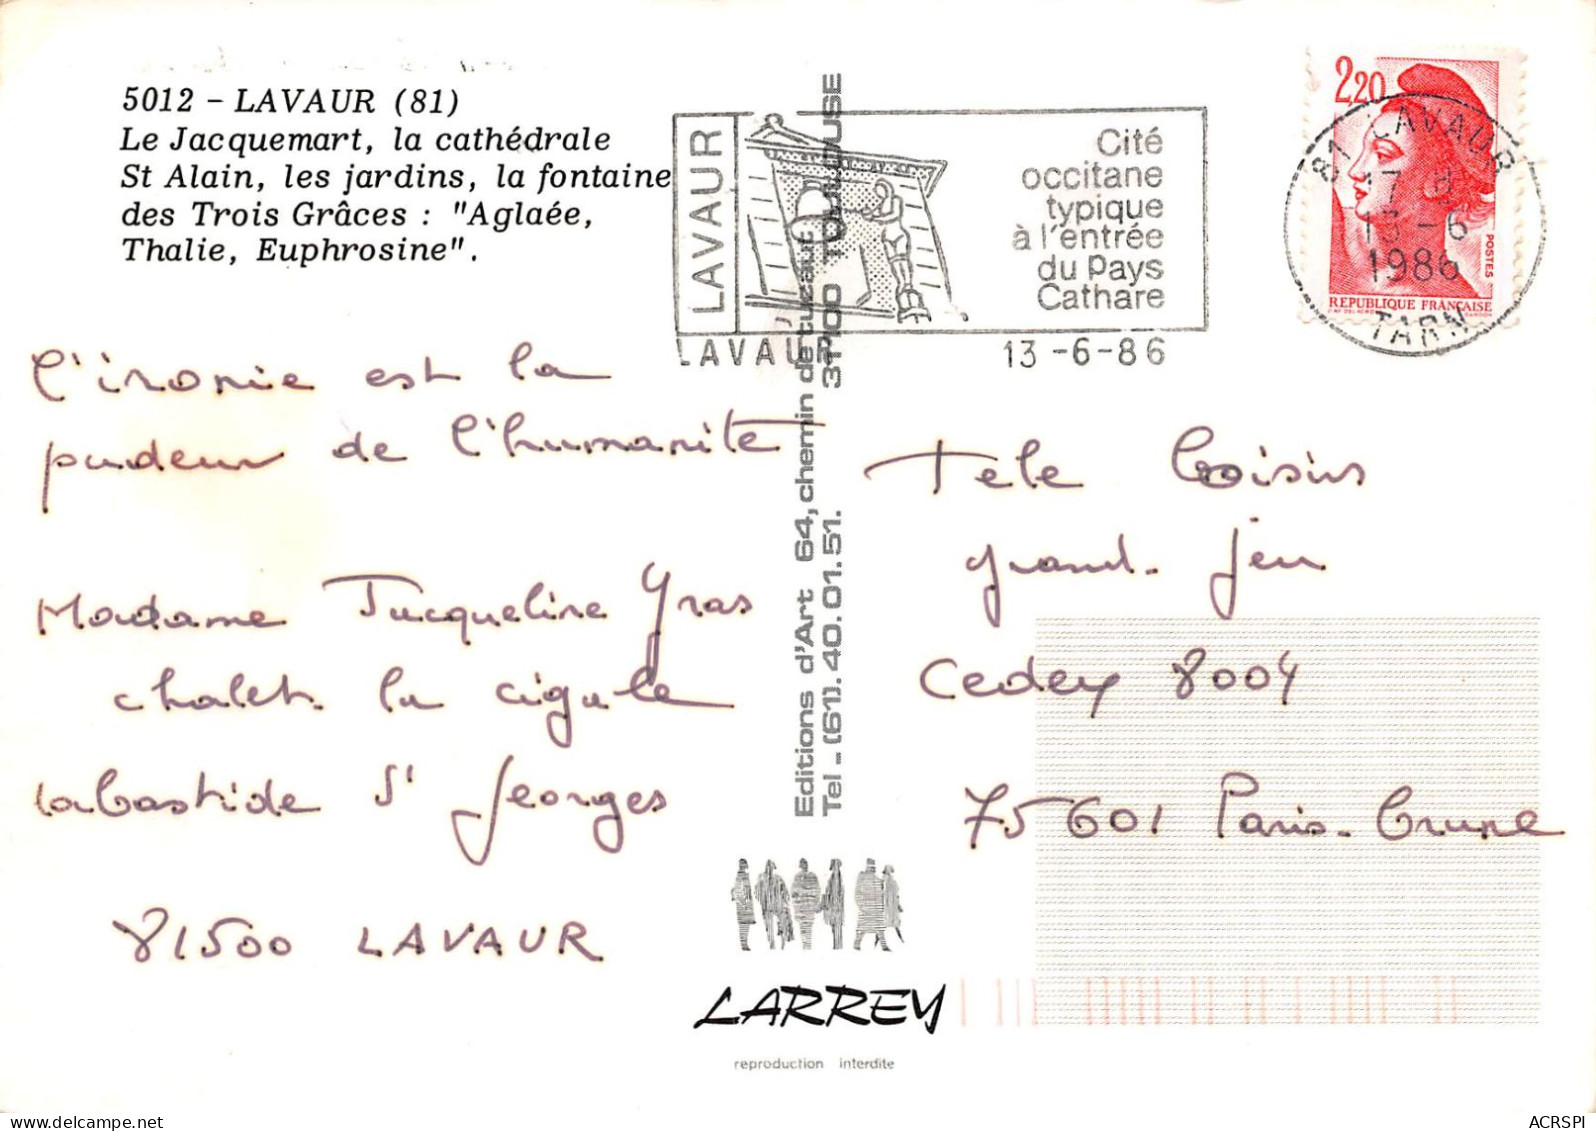 5012 - LAVAUR (81)
Le Jacquemart, la cathédrale
St Alain, les jardins, la fontaine
des Trois Grâces : "Aglaée,
Thalie, Euphrosine".
LAVAUR
Cité
occitane
typique
à l'entrée
du Pays
Cathare
LAVAUR 13-6-86
2,20
POSTES
REPUBLIQUE FRANÇAISE
81 LAVAUR
17 H
13-6
1986
TARN
l'ironie est la
pudeur de l'humanite
Madame Jacqueline Gras
chalet la cigale
labastide St Georges
81500 LAVAUR
Editions d'Art 64, chemin de tucaut 31100 TOULOUSE
Tel - (61). 40. 01. 51.
Tele Loisirs
grand jeu
Cedex 8004
75601 Paris-Brune
LARREY
reproduction interdite
ACRSPI